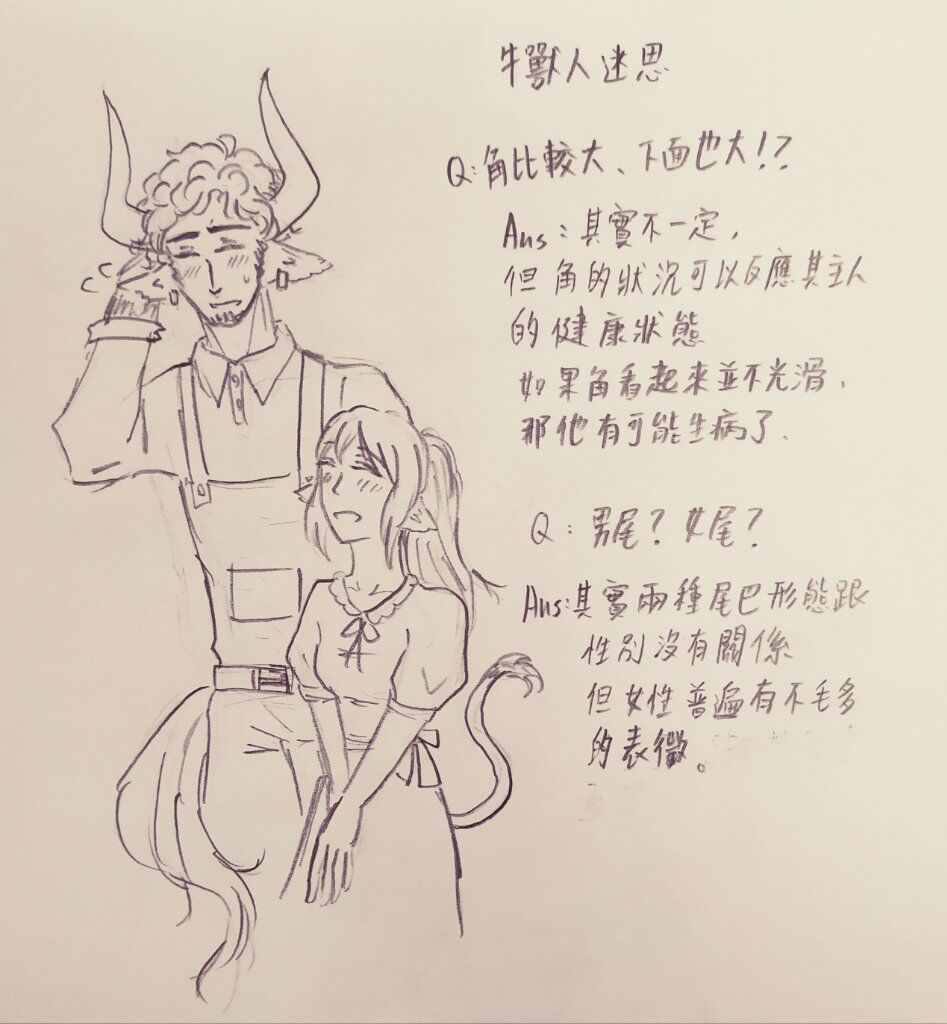 牛獸人迷思
Q:角比較大、下面也大!?
Ans:其實不一定,
但角的狀況可以反應其主人
的健康狀態
如果角看起來並不光滑,
那他有可能生病了.
Q:男尾?女尾?
Ans:其實兩種尾巴形態跟
性別沒有關係
但女性普遍有不毛多
的表徵。